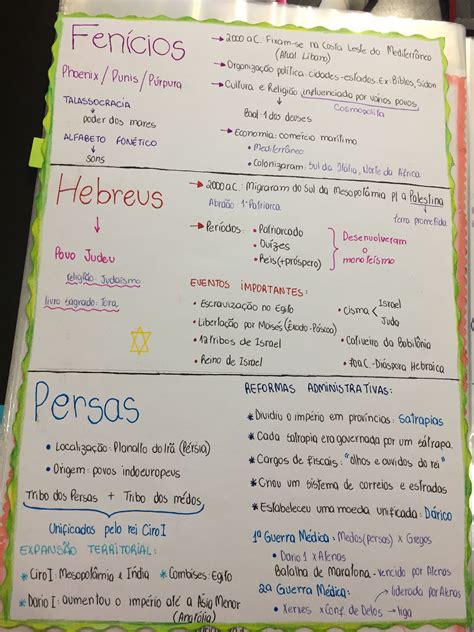 Fenícios
Phoenix / Punis / Púrpura
TALASSOCRACIA
→ poder dos mares
ALFABETO FONÉTICO
sons
→ 2000 a.C. Fixam-se na Costa Leste do Mediterrâneo
(Atual Líbano)
→ Organização política: cidades-estados. Ex: Biblos, Sidon
→ Cultura e Religião influenciado por vários povos
Cosmopolita
Baal: 1 dos deuses
→ Economia: comércio marítimo
• Mediterrâneo
• Colonizaram: Sul da Itália, Norte da África
Hebreus
Povo Judeu
religião: Judaísmo
livro sagrado: Tora
→ 2000 a.C: Migraram do Sul da Mesopotâmia p/ a Palestina
Abraão 1º Patriarca
terra prometida
→ Períodos: • Patriarcado
• Juízes
• Reis (+ próspero)
Desenvolveram
o
monoteísmo
EVENTOS IMPORTANTES:
• Escravização no Egito
• Libertação por Moisés (Êxodo-Páscoa)
• 12 Tribos de Israel
• Reino de Israel
• Cisma
Israel
Judá
• Cativeiro da Babilônia
• 70 d.C - Diáspora Hebraica
Persas
• Localização: Planalto do Irã (Pérsia)
• Origem: povos indoeuropeus
Tribo dos Persas + Tribo dos medos
Unificados pelo rei Ciro I
EXPANSÃO TERRITORIAL:
* Ciro I: Mesopotâmia e Índia * Cambises: Egito
* Dario I: aumentou o império até a Ásia Menor
(Anatólia)
REFORMAS ADMINISTRATIVAS:
* Dividiu o império em províncias: satrapias
* Cada satrapia era governada por um sátrapa.
* Cargos de fiscais: "olhos e ouvidos do rei"
* Criou um sistema de correios e estradas
* Estabeleceu uma moeda unificada: Dárico
1ª Guerra Médica: Medos (persas) x Gregos
• Dario I x Atenas
Batalha de Maratona - vencido por Atenas
2ª Guerra Médica:
liderada por Atenas
• Xerxes x Conf. de Delos → liga